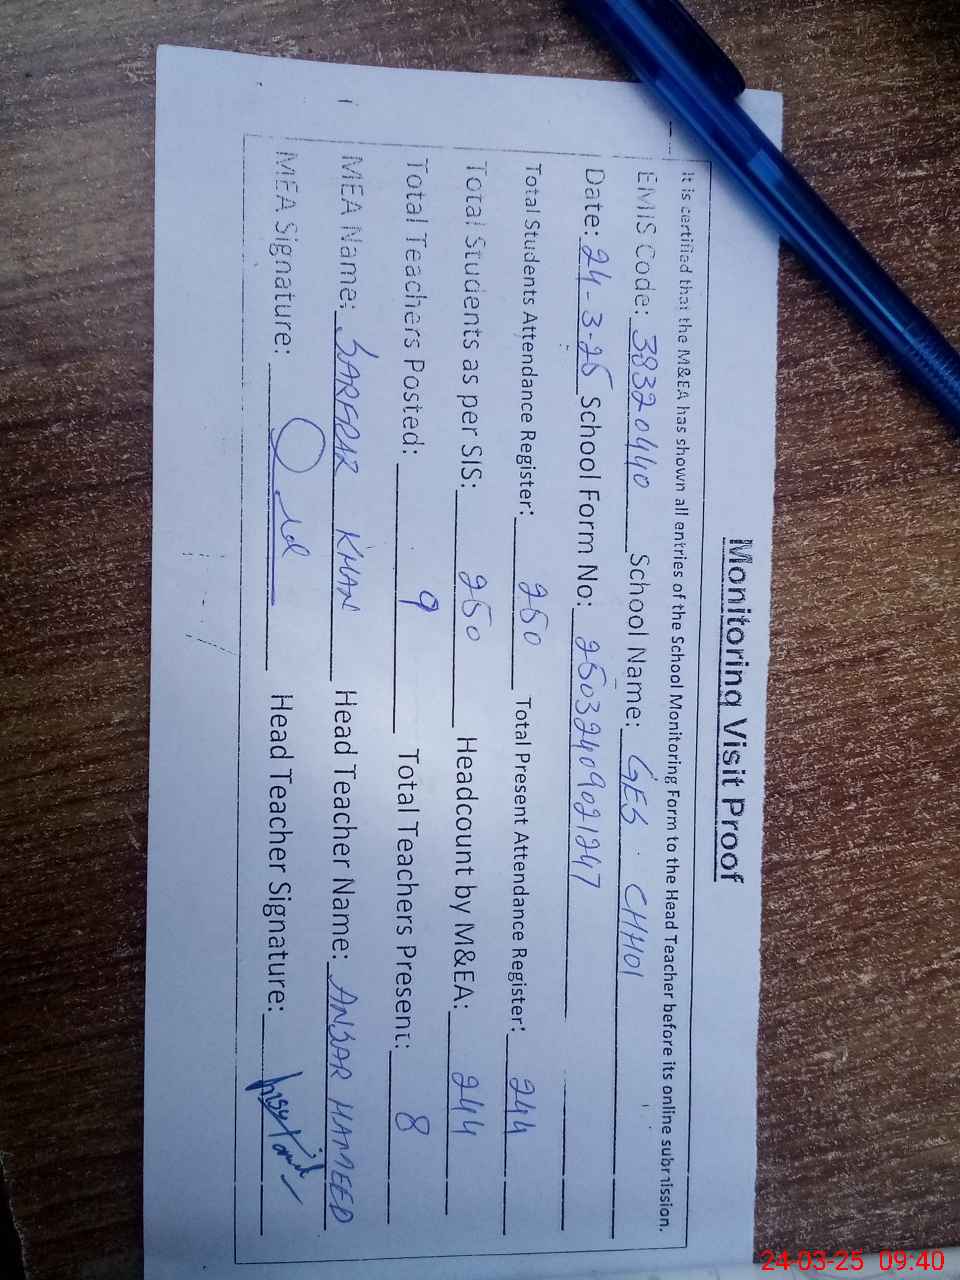 Monitoring Visit Proof
It is certified that the M&EA has shown all entries of the School Monitoring Form to the Head Teacher before its online submission.
EMIS Code: 38320440 School Name: GES. CHHOI
Date: 24-3-25 School Form No: 25032409021247
Total Students Attendance Register: 250 Total Present Attendance Register: 244
Total Students as per SIS: 250 Headcount by M&EA: 244
Total Teachers Posted: 9 Total Teachers Present: 8
MEA Name: SARFRAZ KHAN Head Teacher Name: ANSAR HAMEED
MEA Signature: Head Teacher Signature:
24-03-25 09:40